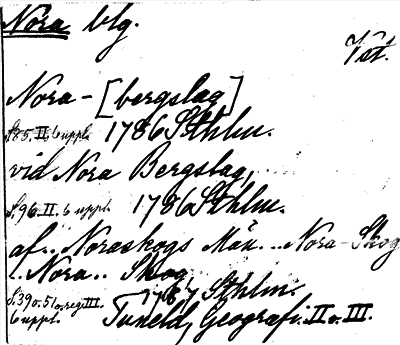 Nora blg.
Vst.
Nora-[bergslag]
S.85.II, 6 uppl. 1786 Sthlm.
vid Nora Bergslag,
S.96.II. 6 uppl. 1786 Sthlm.
af.. Noraskogs Män... Nora-Skog
l. Nora.. Skog
S.390.510,reg.III. 1787 Sthlm.
6 uppl. Tuneld, Geografi. II o. III.